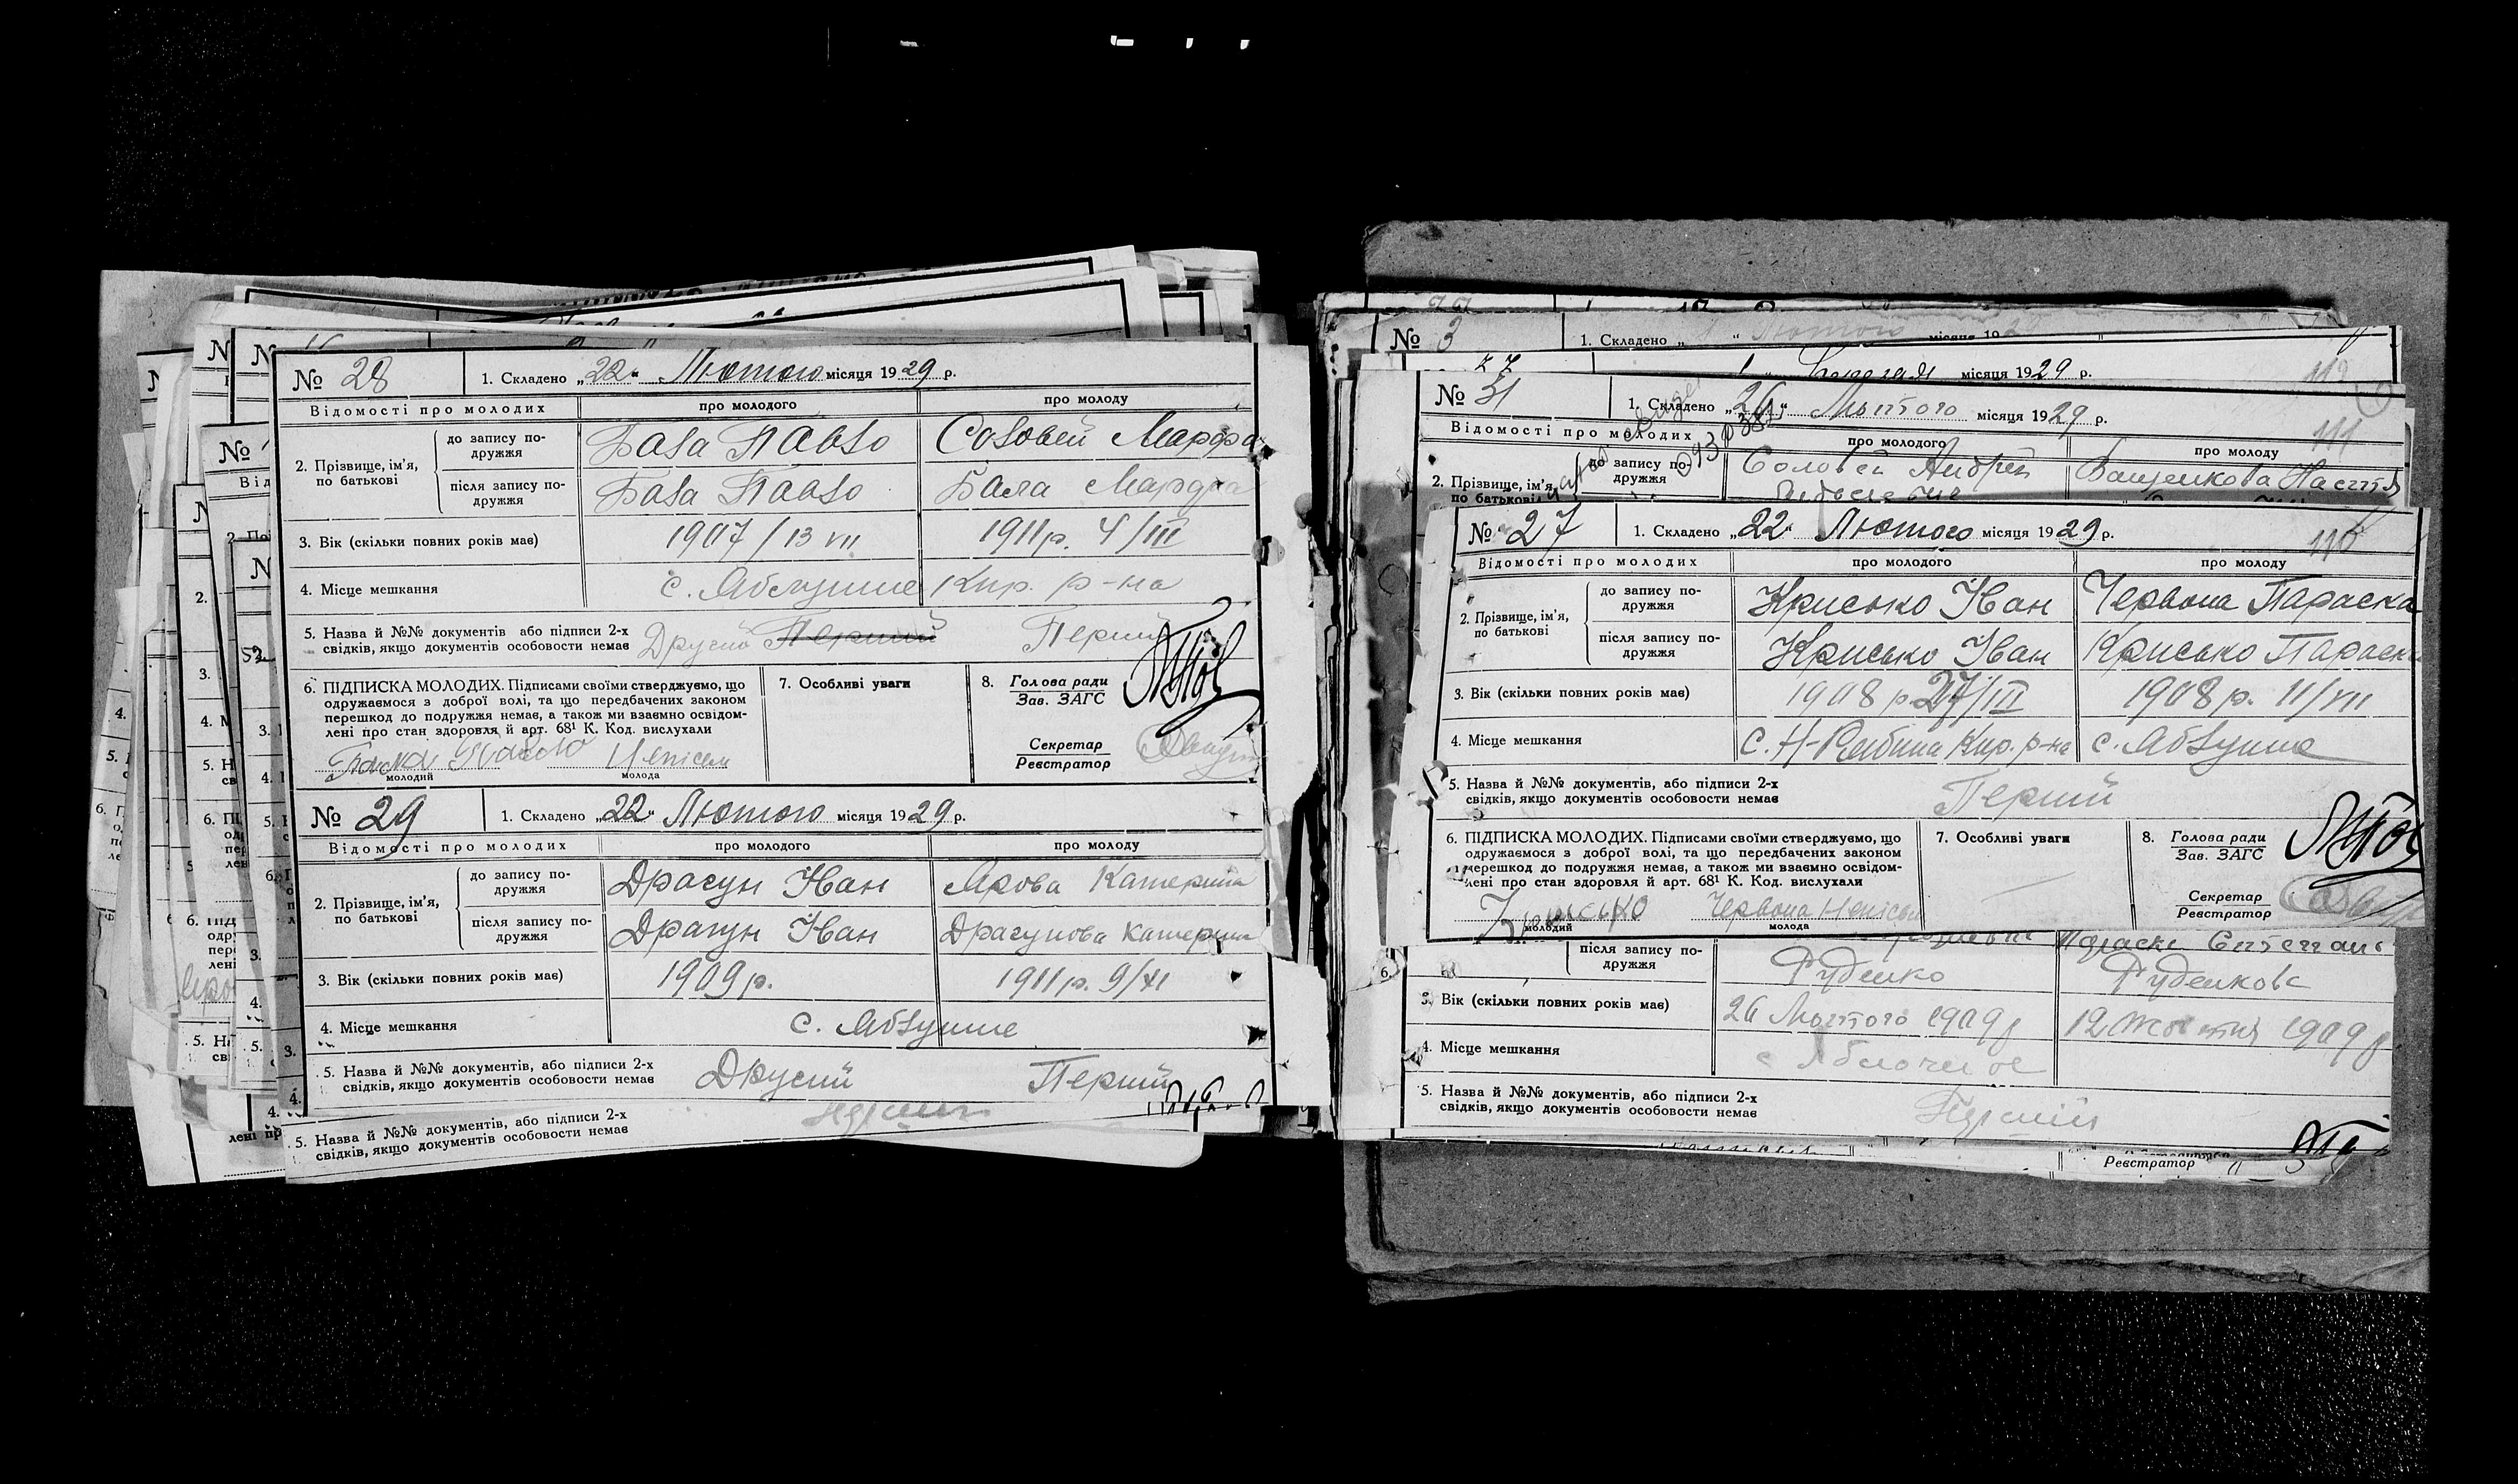 № 28 1. Складено „22“ Лютого місяця 1929 р.
Відомості про молодих про молодого про молоду
2. Прізвище, ім'я, по батькові
до запису по-дружжя Бала Павло Соловей Марфа
після запису по-дружжя Бала Павло Бала Марфа
3. Вік (скільки повних років має) 1907/13 VII 1911 р. 4/III
4. Місце мешкання с. Яблушне Кир. р-на
5. Назва й №№ документів або підписи 2-х
свідків, якщо документів особовости немає Другий Перший Перший
6. ПІДПИСКА МОЛОДИХ. Підписами своїми стверджуємо, що
одружаємося з доброї волі, та що передбачених законом
перешкод до подружжя немає, а також ми взаємно освідом-
лені про стан здоровля й арт. 68¹ К. Код. вислухали
Бала Павло Неписьм
молодий молода
7. Особливі уваги
8. Голова ради
Зав. ЗАГС
Секретар
Реєстратор
№ 29 1. Складено „22“ Лютого місяця 1929 р.
Відомості про молодих про молодого про молоду
2. Прізвище, ім'я, по батькові
до запису по-дружжя Драгун Іван Ярова Катерина
після запису по-дружжя Драгун Іван Драгунова Катерина
3. Вік (скільки повних років має) 1909 р. 1911 р. 9/XI
4. Місце мешкання с. Яблушне
5. Назва й №№ документів, або підписи 2-х
свідків, якщо документів особовости немає Другий Перший
5. Назва й №№ документів, або підписи 2-х
свідків, якщо документів особовости немає
№ 3 1. Складено „ “ Лютого місяця 1929
місяця 1929 р.
112
№ 31 1. Складено „26“ Лютого місяця 1929 р.
111
Відомості про молодих про молодого про молоду
2. Прізвище, ім'я,
по батькові
до запису по-дружжя Соловей Андрій Бащенкова Настя
№ 27 1. Складено „22“ Лютого місяця 1929 р.
110
Відомості про молодих про молодого про молоду
2. Прізвище, ім'я, по батькові
до запису по-дружжя Крисько Іван Червона Параска
після запису по-дружжя Крисько Іван Крисько Параска
3. Вік (скільки повних років має) 1908 р. 27/III 1908 р. 11/VII
4. Місце мешкання с. Н-Рябина Кир. р-на с. Яблушне
5. Назва й №№ документів, або підписи 2-х
свідків, якщо документів особовости немає Перший
6. ПІДПИСКА МОЛОДИХ. Підписами своїми стверджуємо, що
одружаємося з доброї волі, та що передбачених законом
перешкод до подружжя немає, а також ми взаємно освідом-
лені про стан здоровля й арт. 68¹ К. Код. вислухали
Крисько Червона Неписьм
молодий молода
7. Особливі уваги
8. Голова ради
Зав. ЗАГС
Секретар
Реєстратор
після запису по-дружжя Руденко Руденкова
3. Вік (скільки повних років має) 26 Лютого 1909 р 12 Жовтня 1909 р
4. Місце мешкання с Яблочное
5. Назва й №№ документів, або підписи 2-х
свідків, якщо документів особовости немає Перший
Реєстратор